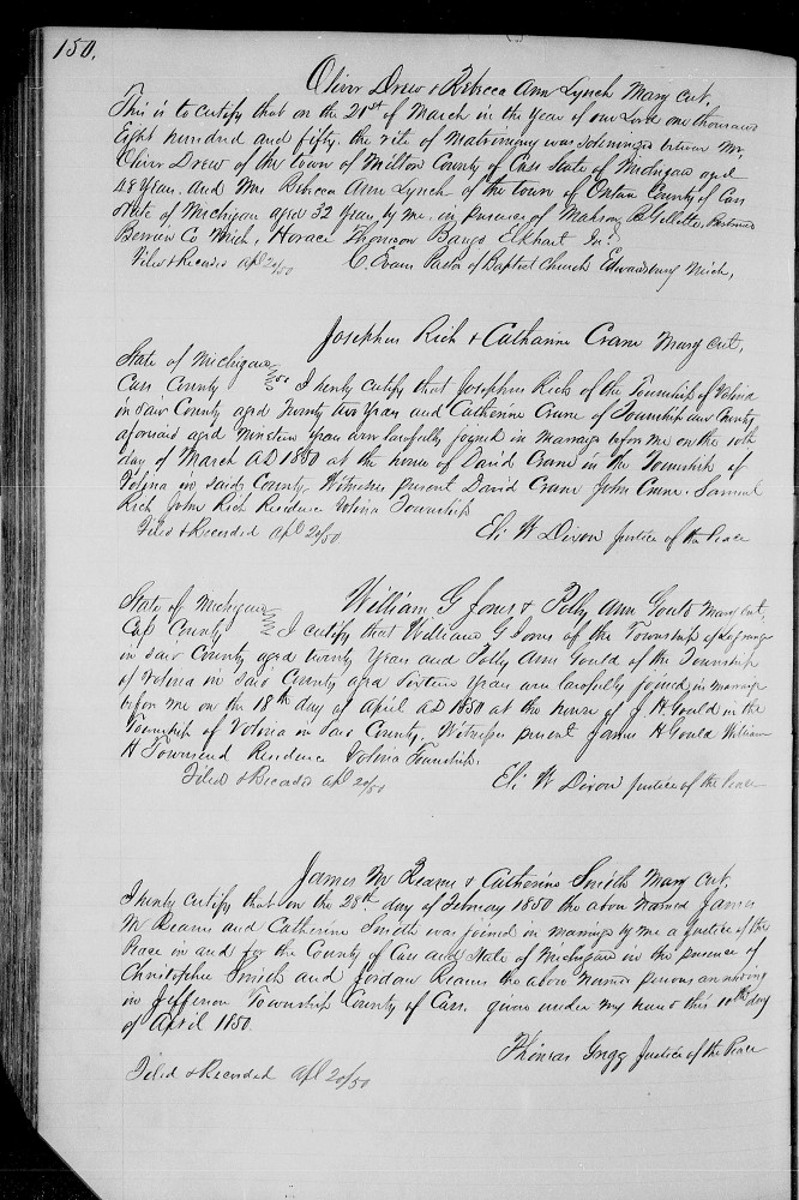 150.
Oliver Drew & Rebecca Ann Lynch Marg cert.
This is to certify that on the 21st of March in the year of our Lord one thousand
Eight hundred and fifty. the rite of Matrimony was solemnized between Mr,
Oliver Drew of the town of Milton County of Cass State of Michigan aged
48 Years. and Mrs Rebecca Ann Lynch of the town of Ontwa County of Cass
State of Michigan aged 32 Years, by me. in presence of Mahson B Gillette, Bertrand
Berrien Co Mich, Horace Thomson Baugo Elkhart In?
Filed & Recorded Apl 20/50 C. Evans Pastor of Baptist Church Edwardsburg Mich,
Josephus Rich & Catharine Crane Marg cert,
State of Michigan
Cass County ss I herby certify that Josephus Rich of the Township of Volinia
in said County aged Twenty two Years and Catherine Crane of Township and County
aforesaid aged Nineteen Years were lawfully joined in marriage before me on the 10th
day of March AD 1850 at the house of David Crane in the Township of
Volinia in said County. Witnesses present David Crane John Crane. Samuel
Rich John Rich Residence Volinia Township
Filed & Recorded Apl 20/50 Eli W Dixon Justice of the Peace
State of Michigan William G Jones & Polly Ann Gould Marg cert,
Cass County I certify that William G Jones of the Township of Lagrange
in said County aged twenty Years and Polly Ann Gould of the Township
of Volinia in said County aged Sixteen Years were lawfully joined in marriage
before me on the 18th day of April AD 1850 at the house of J. H. Gould in the
Township of Volinia in said County. Witnesses present James H Gould William
H Townsend Residence Volinia Township.
Filed & Recorded Apl 20/50 Eli W Dixon Justice of the Peace
James M Reams & Catherine Smith Marg Cert.
I herby certify that on the 28th day of February 1850 the above named James
M Reams and Catherine Smith was joined in marriage by me a Justice of the
Peace in and for the County of Cass and State of Michigan in the presence of
Christopher Smith and Jordan Reams the above named persons are residing
in Jefferson Township County of Cass. given under my hand this 10th day
of April 1850.
Thomas Grigg Justice of the Peace
Filed & Recorded Apl 20/50